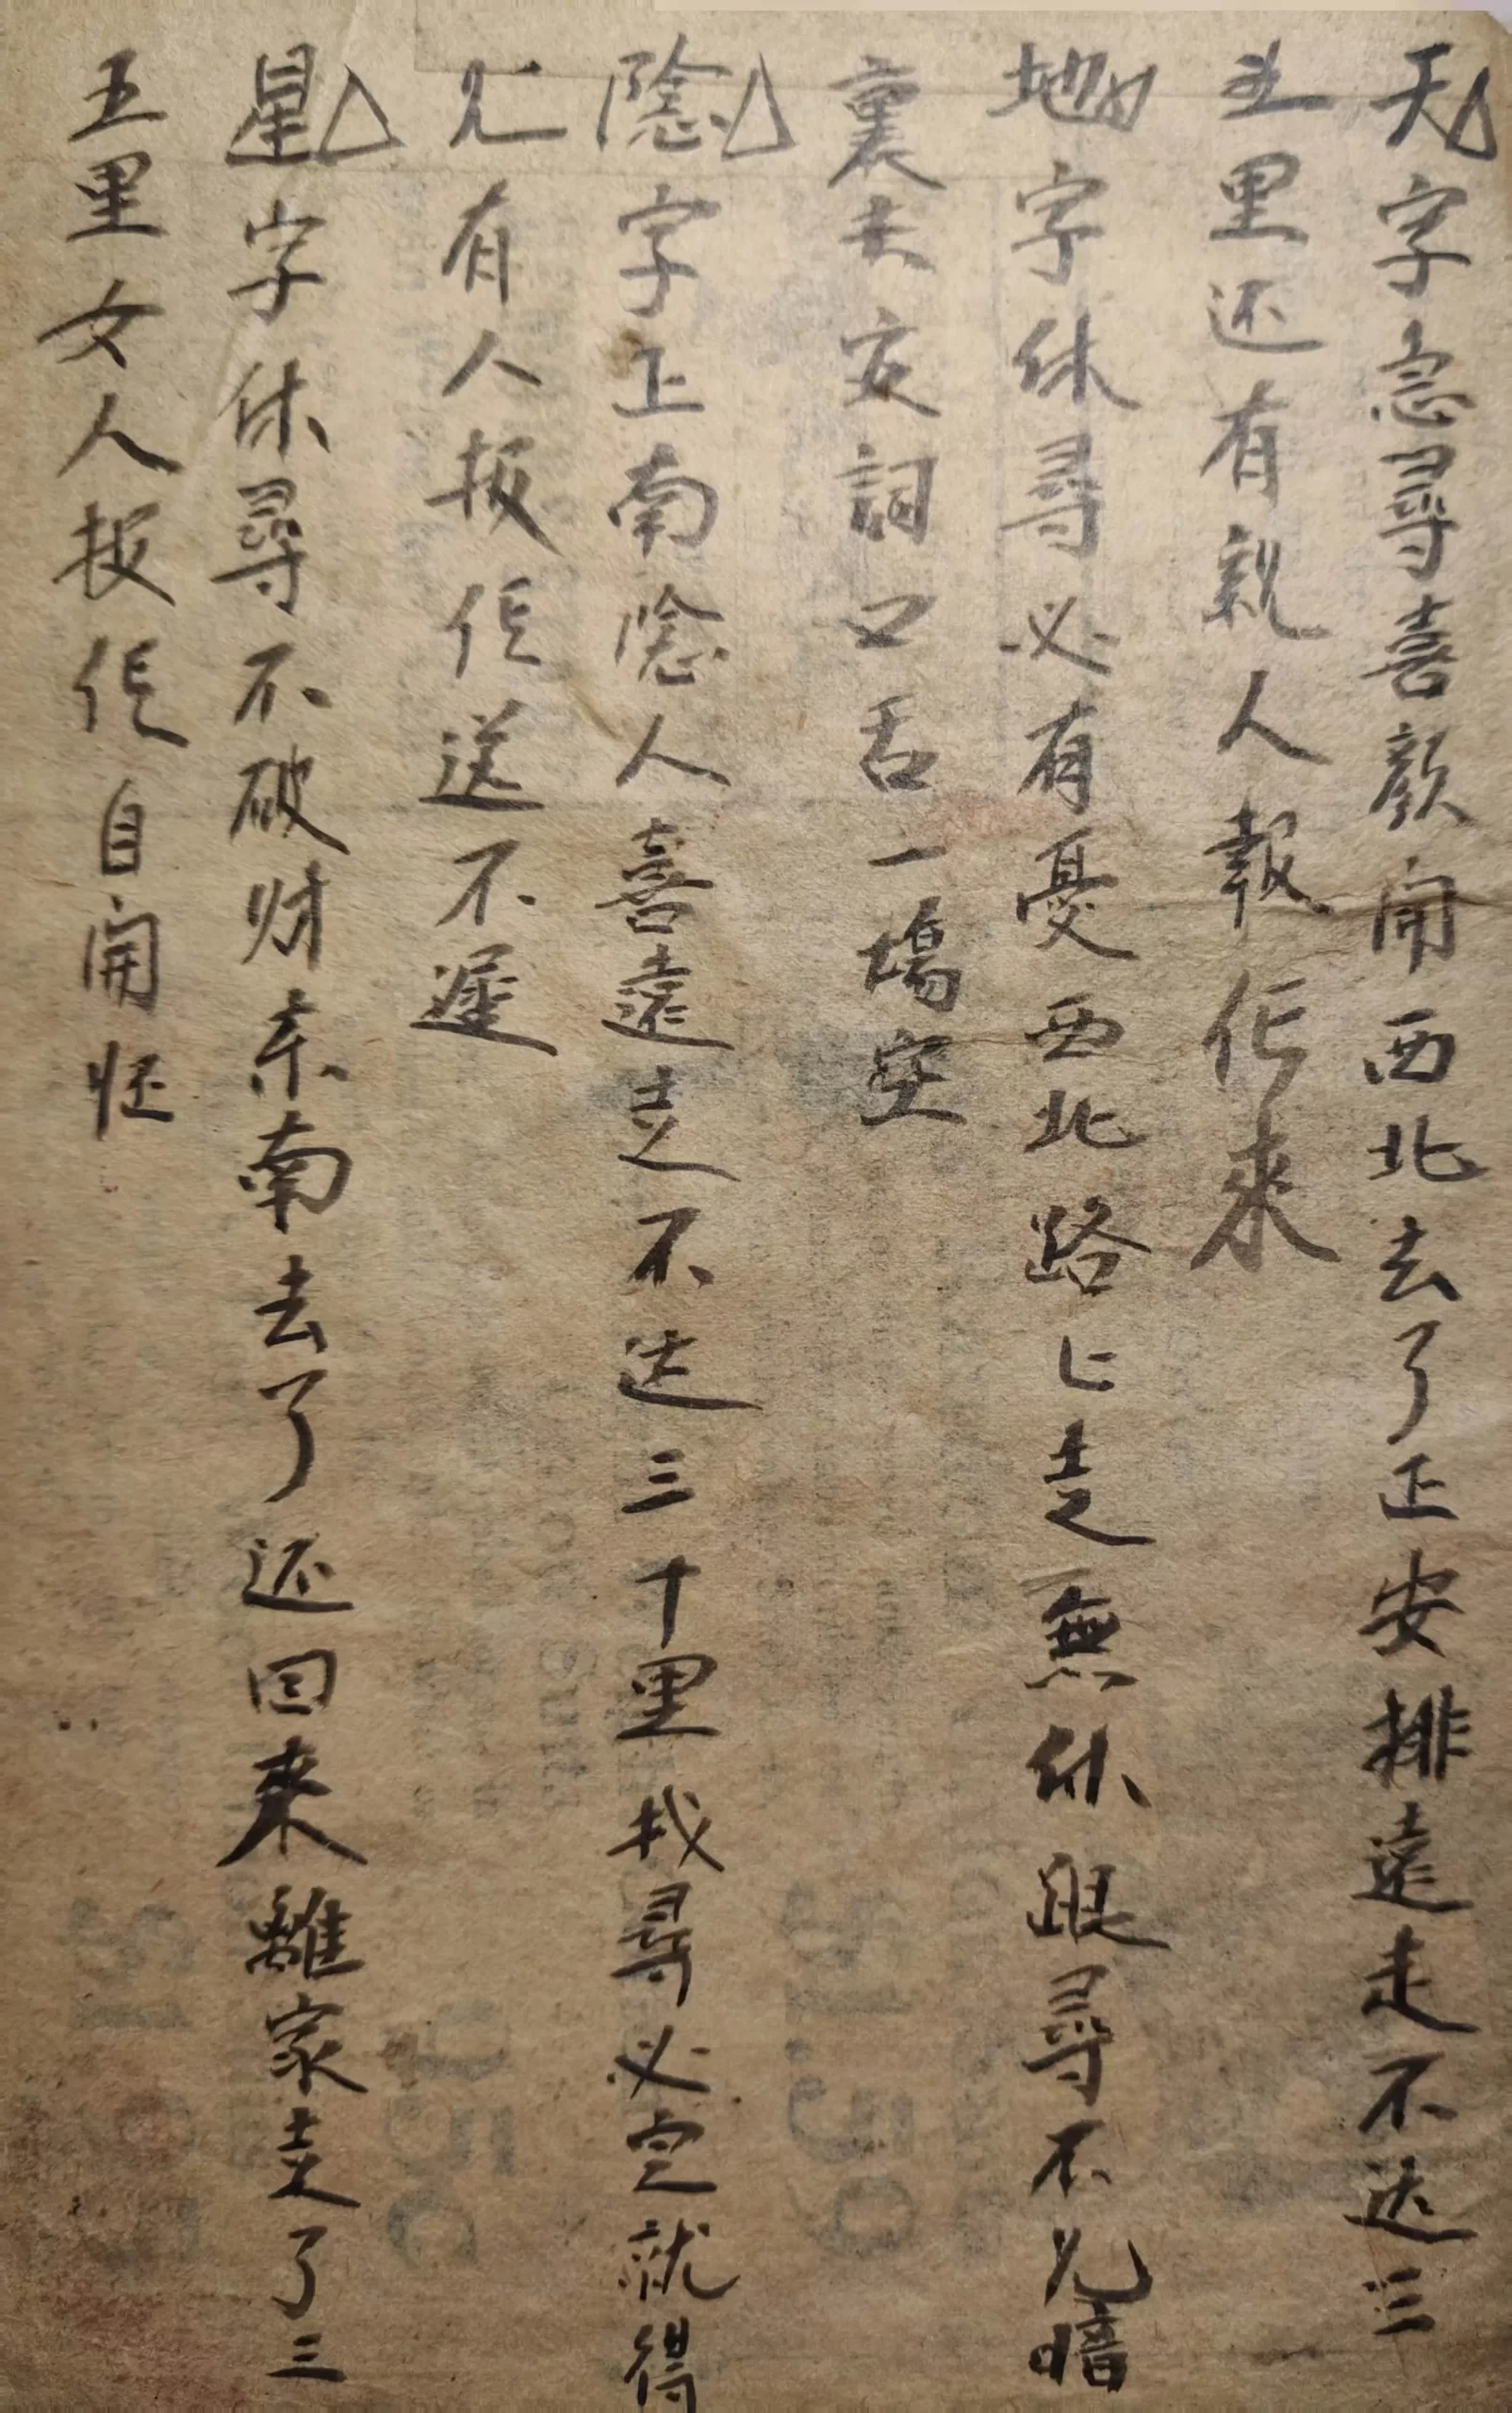 天字急尋喜顔開西北去了正安排遠走不达三
五里还有親人報佢来
地字休尋必有憂西北路上走無休跟尋不见暗
裏夫交詞口舌一場空
陰字正南陰人喜遠走不达三十里找尋必定就得
见有人报佢送不遲
星字休尋不破财东南去了还回來離家走了三
五里女人报佢自開怀